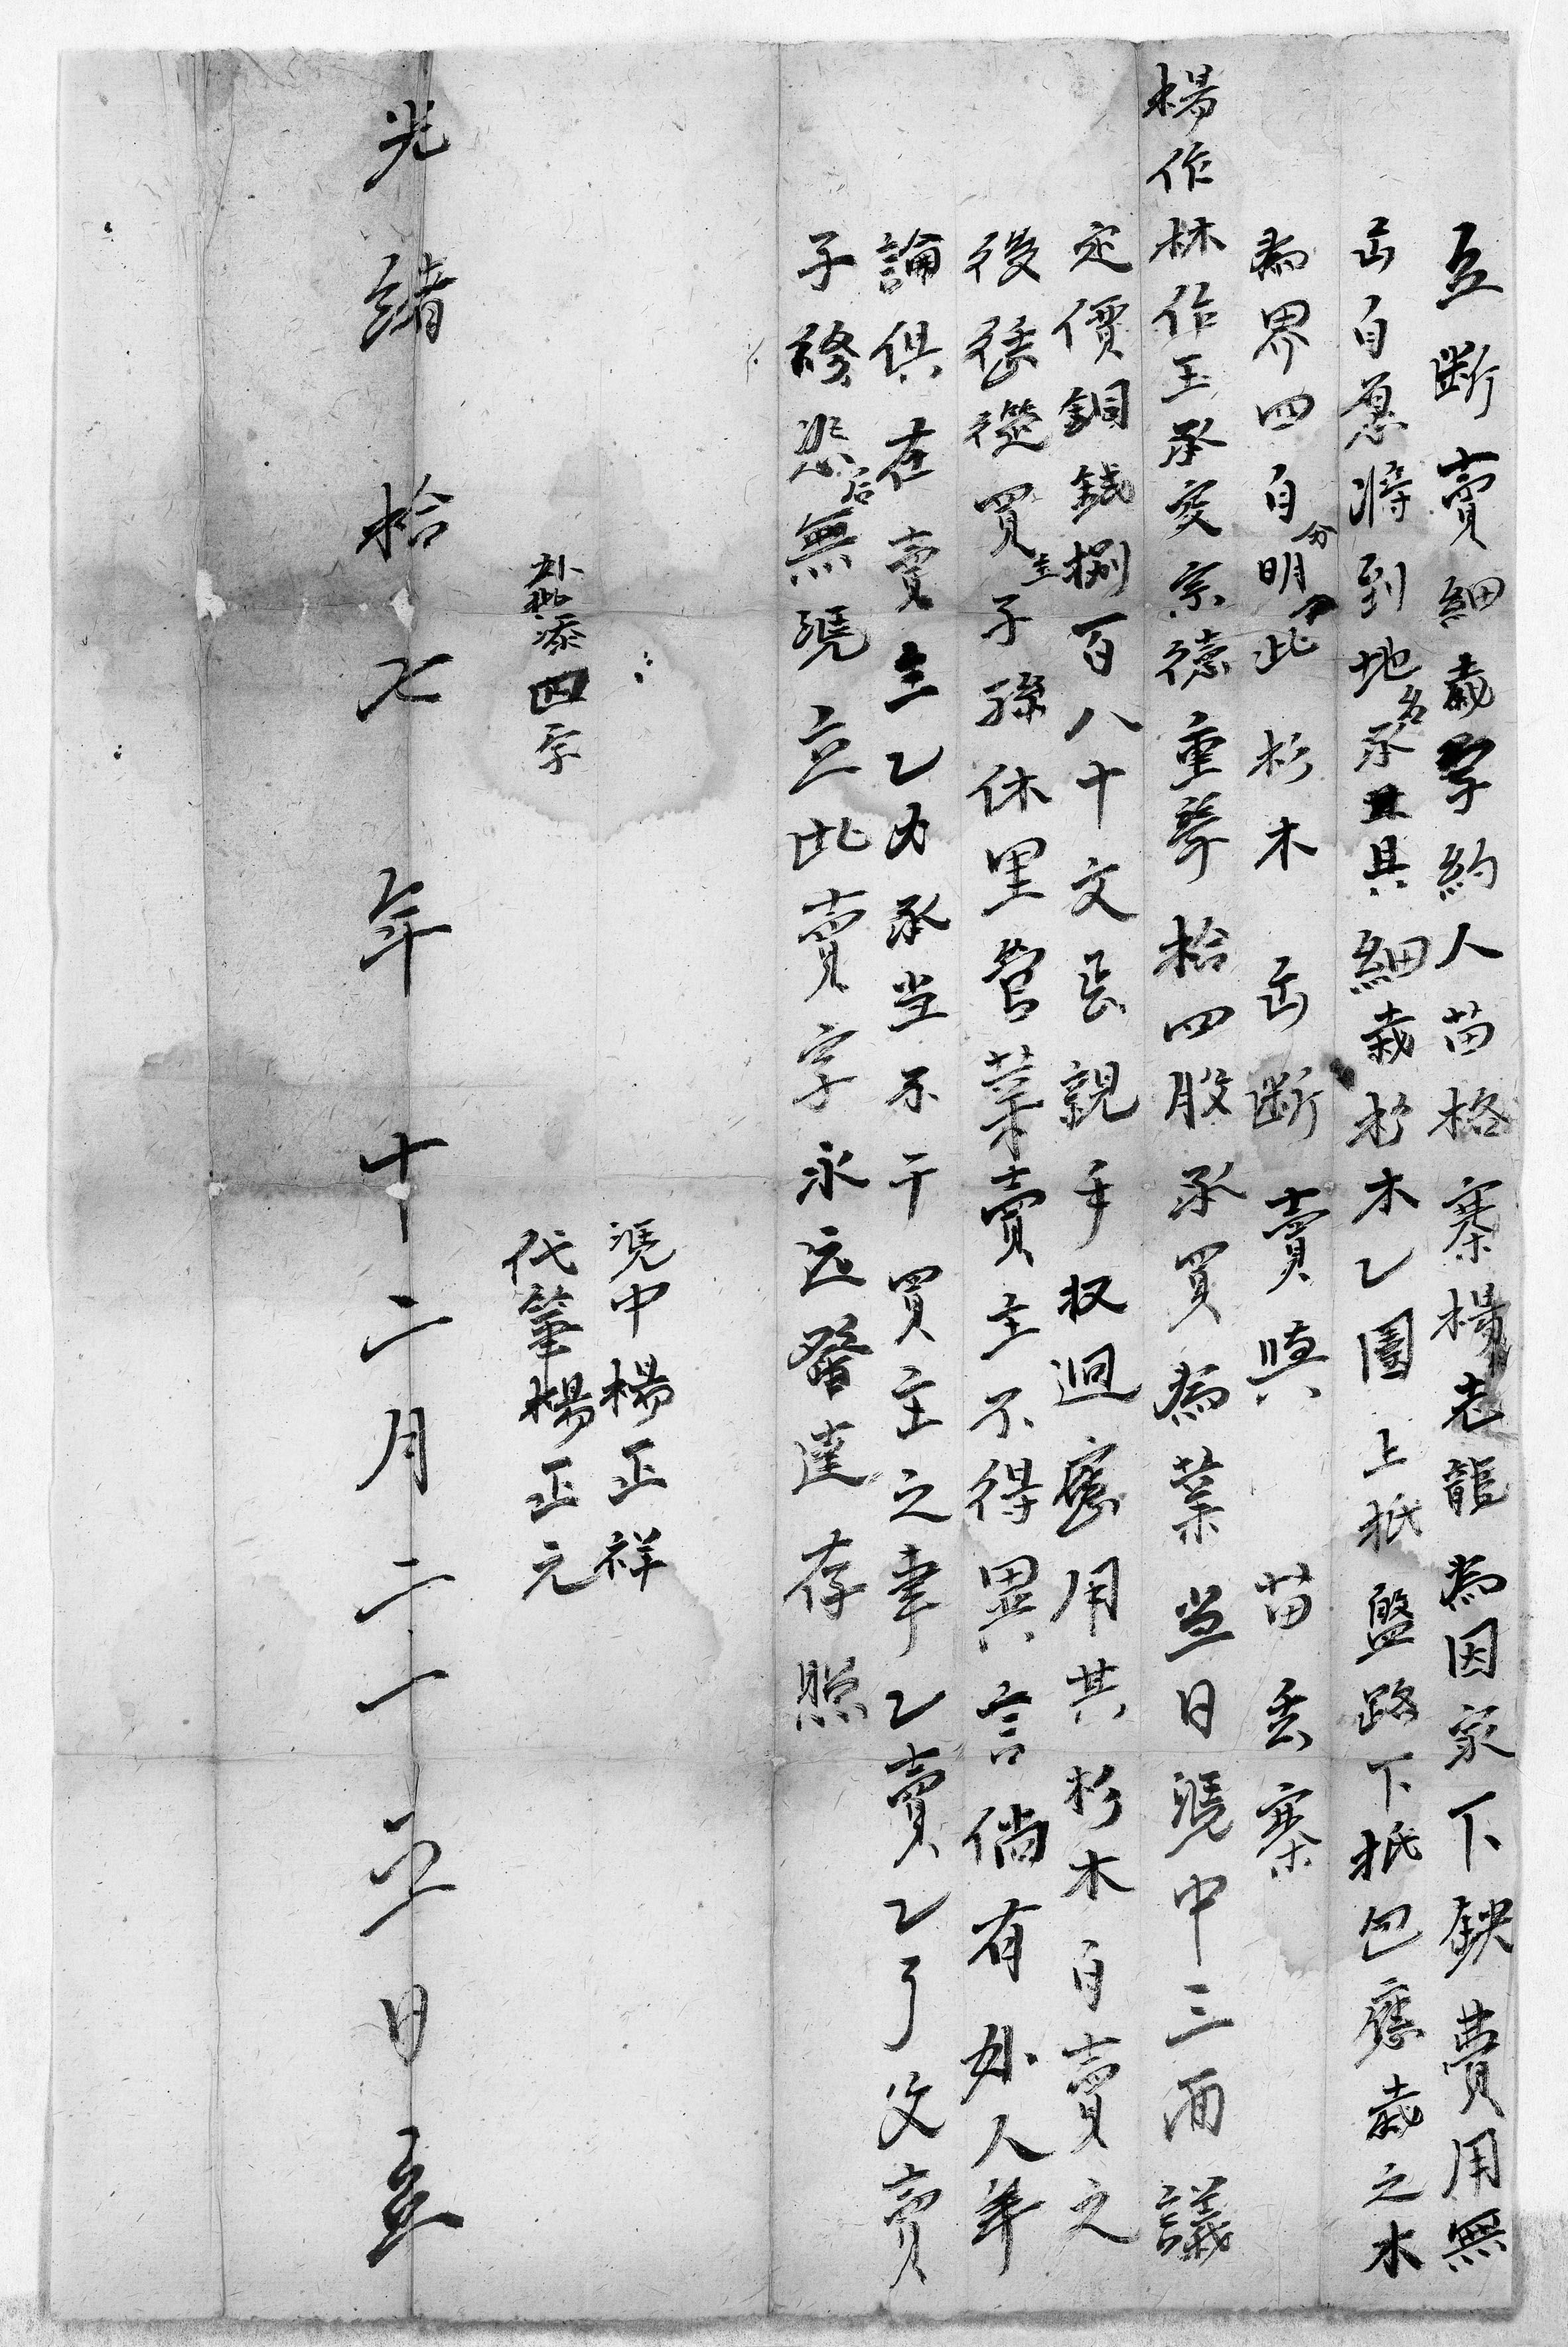 立断賣細栽字約人苗格寨楊老龍為因家下缺費用無
出自愿將到地名禾具細栽杉木乙團上抵盤路下抵包應栽之木
為界四自分明此杉木出断賣與苗丢寨
楊作林作玉承交宗德重拳拾四股承買為業当日慿中三面議
定價銅錢捌百八十文足親手収迴應用其杉木自賣之
後恁從買主子孫休里管業賣主不得異言倘有外人争
論俱在賣主乙力承当不干買主之事乙賣乙了父賣
子終悲后無慿立此賣字永远發達存照
慿中楊正祥
外批添四字
代筆楊正元
光緒拾七年十二月二十一日立